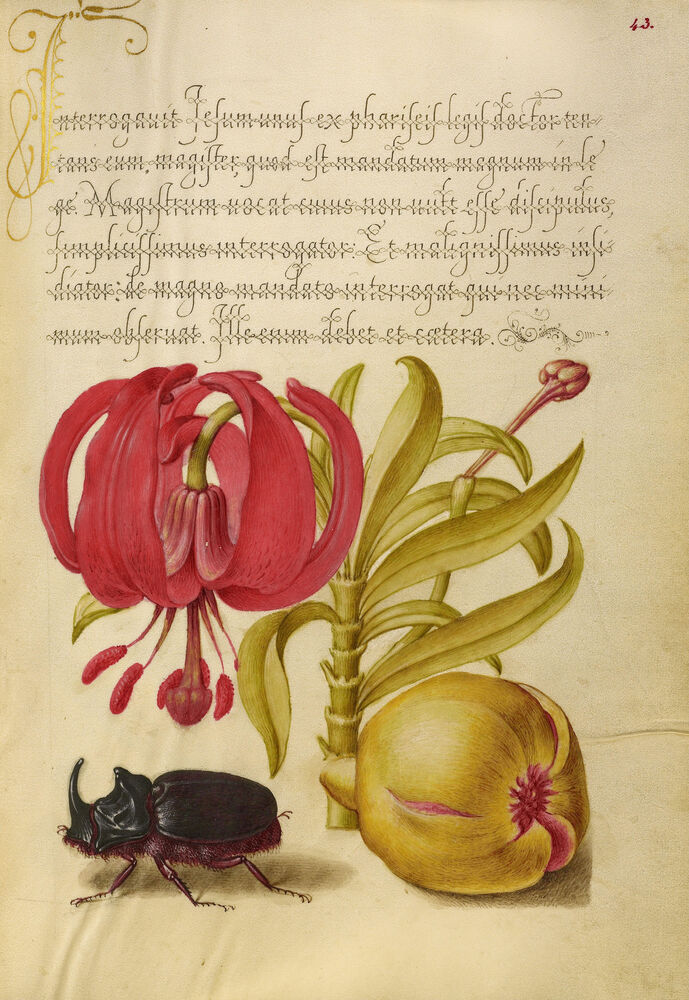 43.
Interrogavit Jesum unus ex phariseis legis doctor ten-
tans eum, magister, quod est mandatum magnum in le
ge. Magistrum vocat cuius non vult esse discipulus,
simplicissimus interrogator: Et malignissimus insi-
diator: de magno mandato interrogat qui nec mini
mum observat. Ille enim debet et cætera.